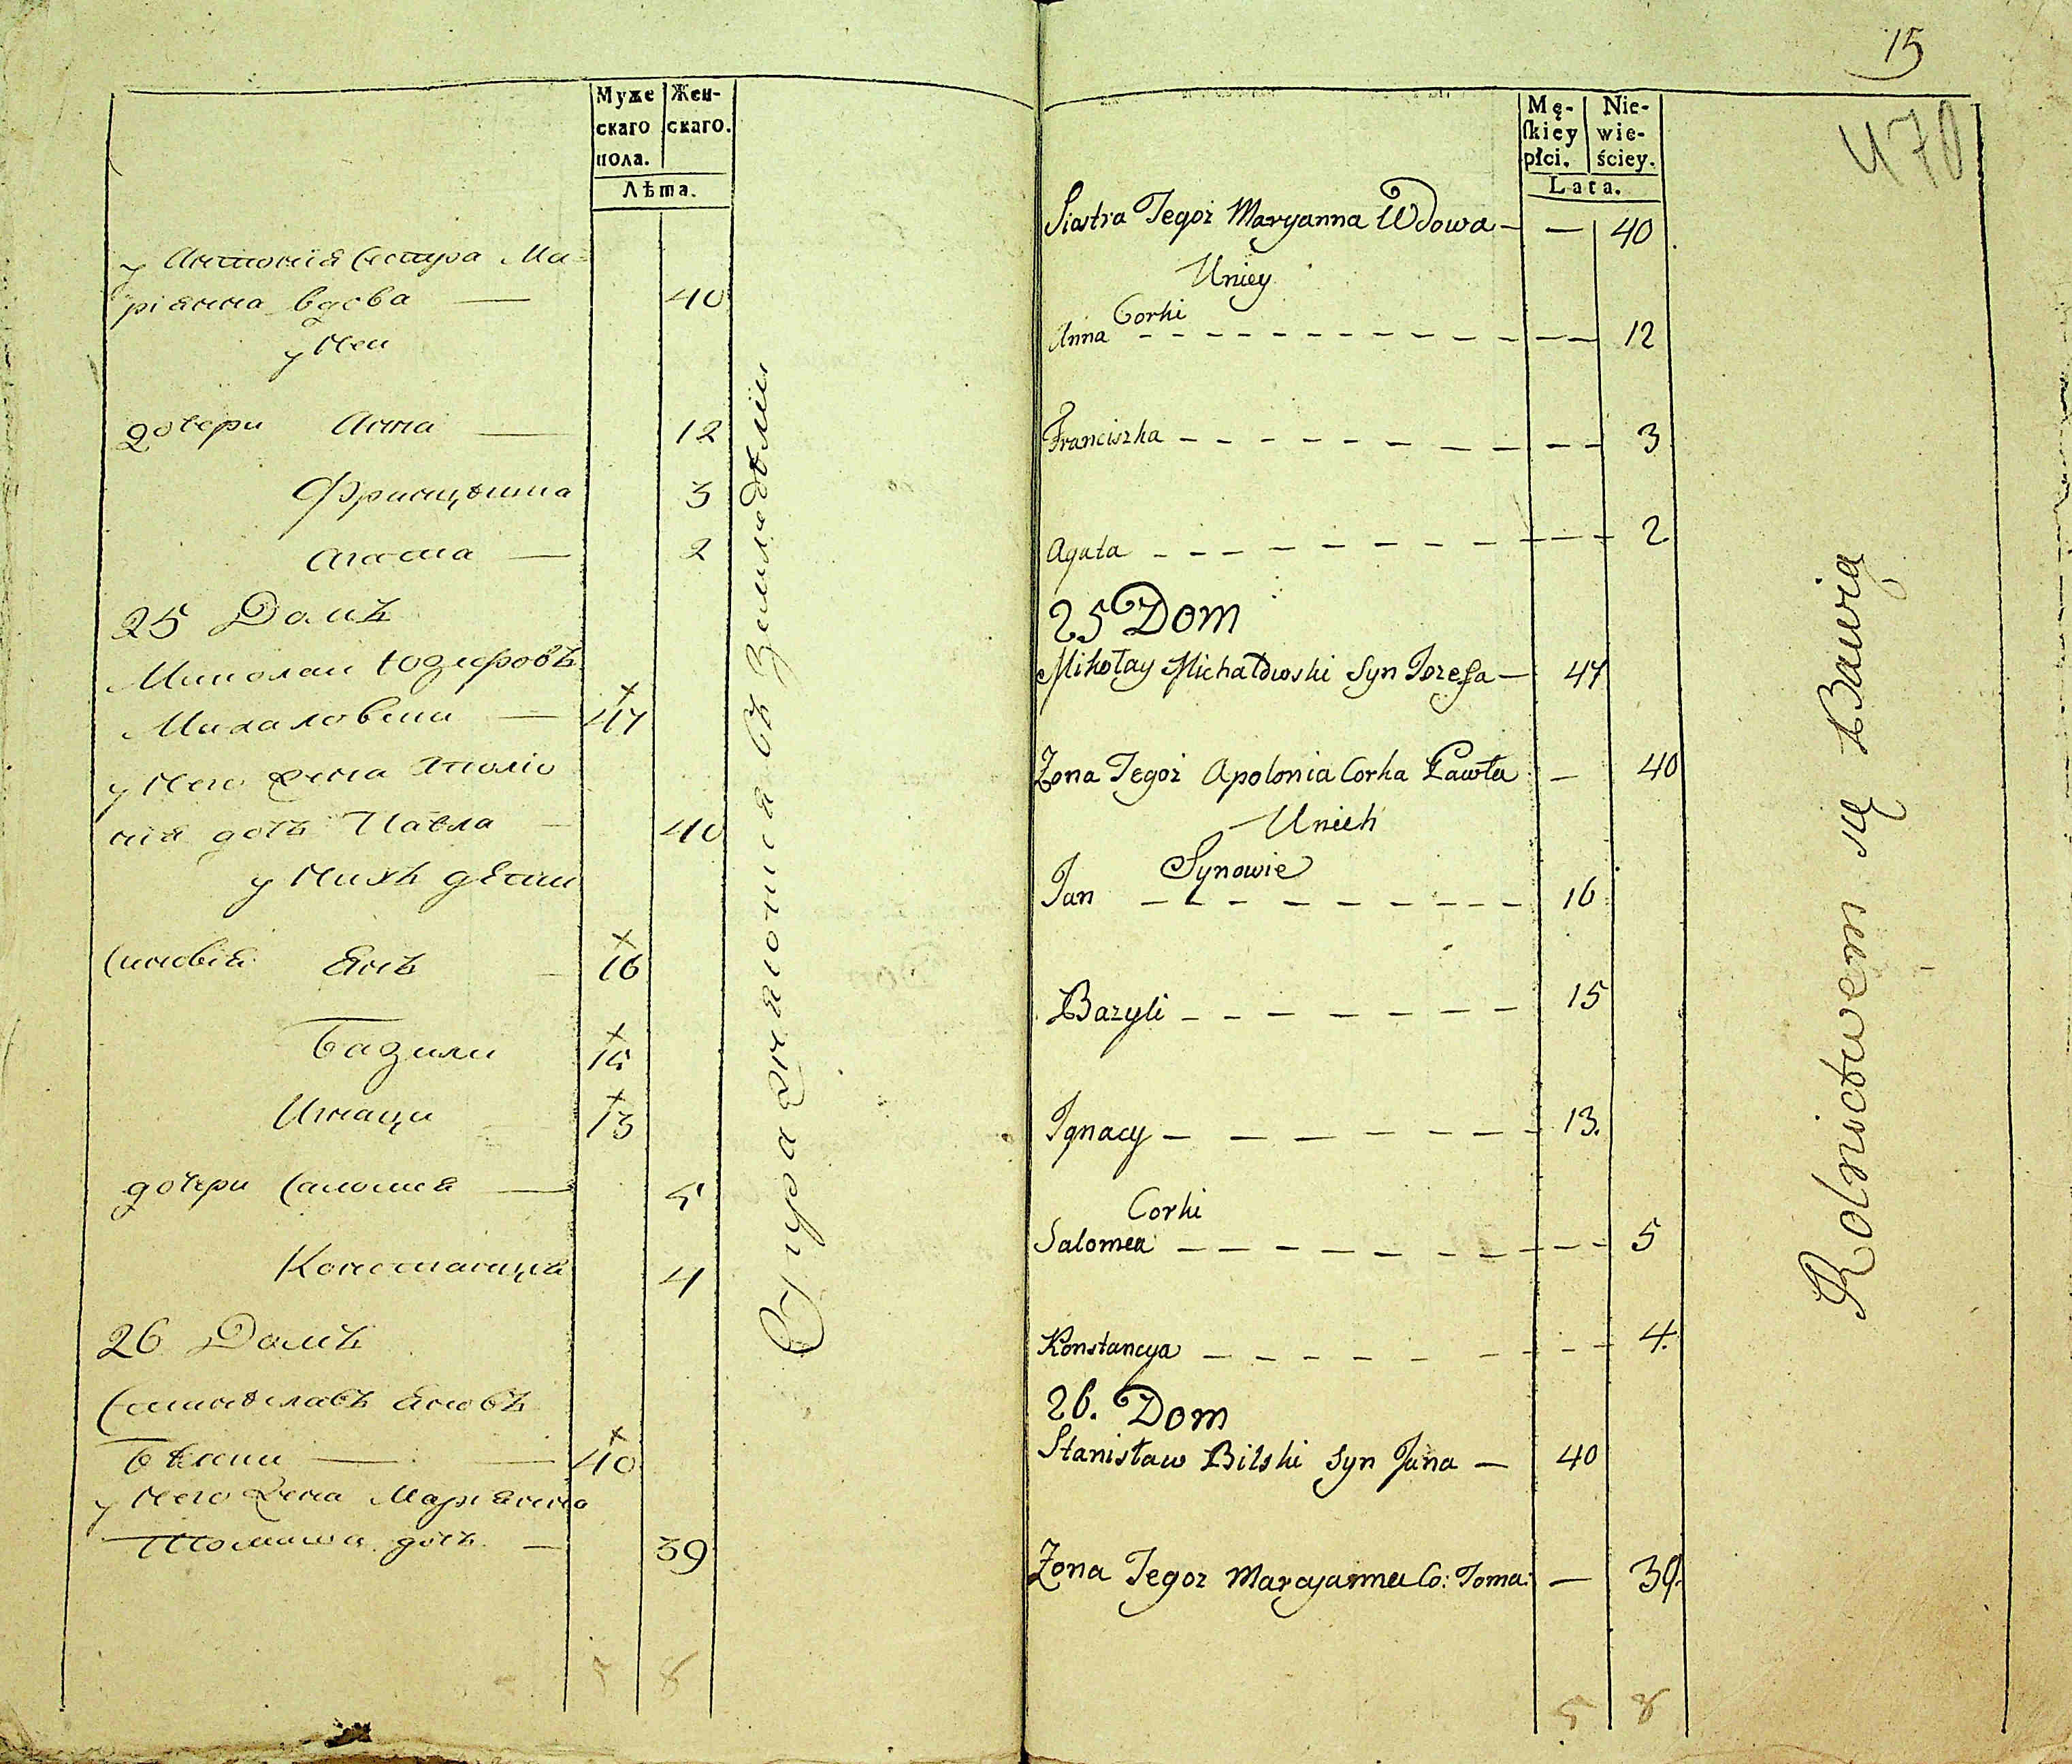 Муже Жен-
скаго скаго.
пола.
Лѣта.
у Антонія сестра Ма-
ріянна вдова — 40
у Неи
дочери Анна — 12
Францѣшка 3
Агата — 2
25 Домъ
Миколаи Юзефовъ
Михаловски — 47
у Него Жена Аполіо
нія дочъ Павла — 40
у Нихъ дѣти
Синовія Янъ — 16
Базили 15
Игнаци 13
дочери Саломея — 5
Констанція 4
26 Домъ
Станѣславъ Яновъ
Бѣлски — 40
у Него Жена Маріянна
Томаша дочъ — 39
5 8
Упражняются въ Земледѣліи
15
470
Mę- Nie-
skiey wie-
płci. ściey.
Lata.
Siostra Tegoż Maryanna Wdowa — — 40
Uniey
Corki
Anna — 12
Franciszka — 3
Agata — 2
25 Dom
Mikołay Michałowski Syn Jozefa — 47
Zona Tegoż Apolonia Corka Pawła — 40
Unich
Synowie
Jan — 16
Bazyli — 15
Ignacy — 13.
Corki
Salomea — 5
Konstancya — 4.
26. Dom
Stanisław Bilski Syn Jana — 40
Zona Tegoz Maryanna Co: Toma: — 39.
5 8
Rolnictwem się Bawią